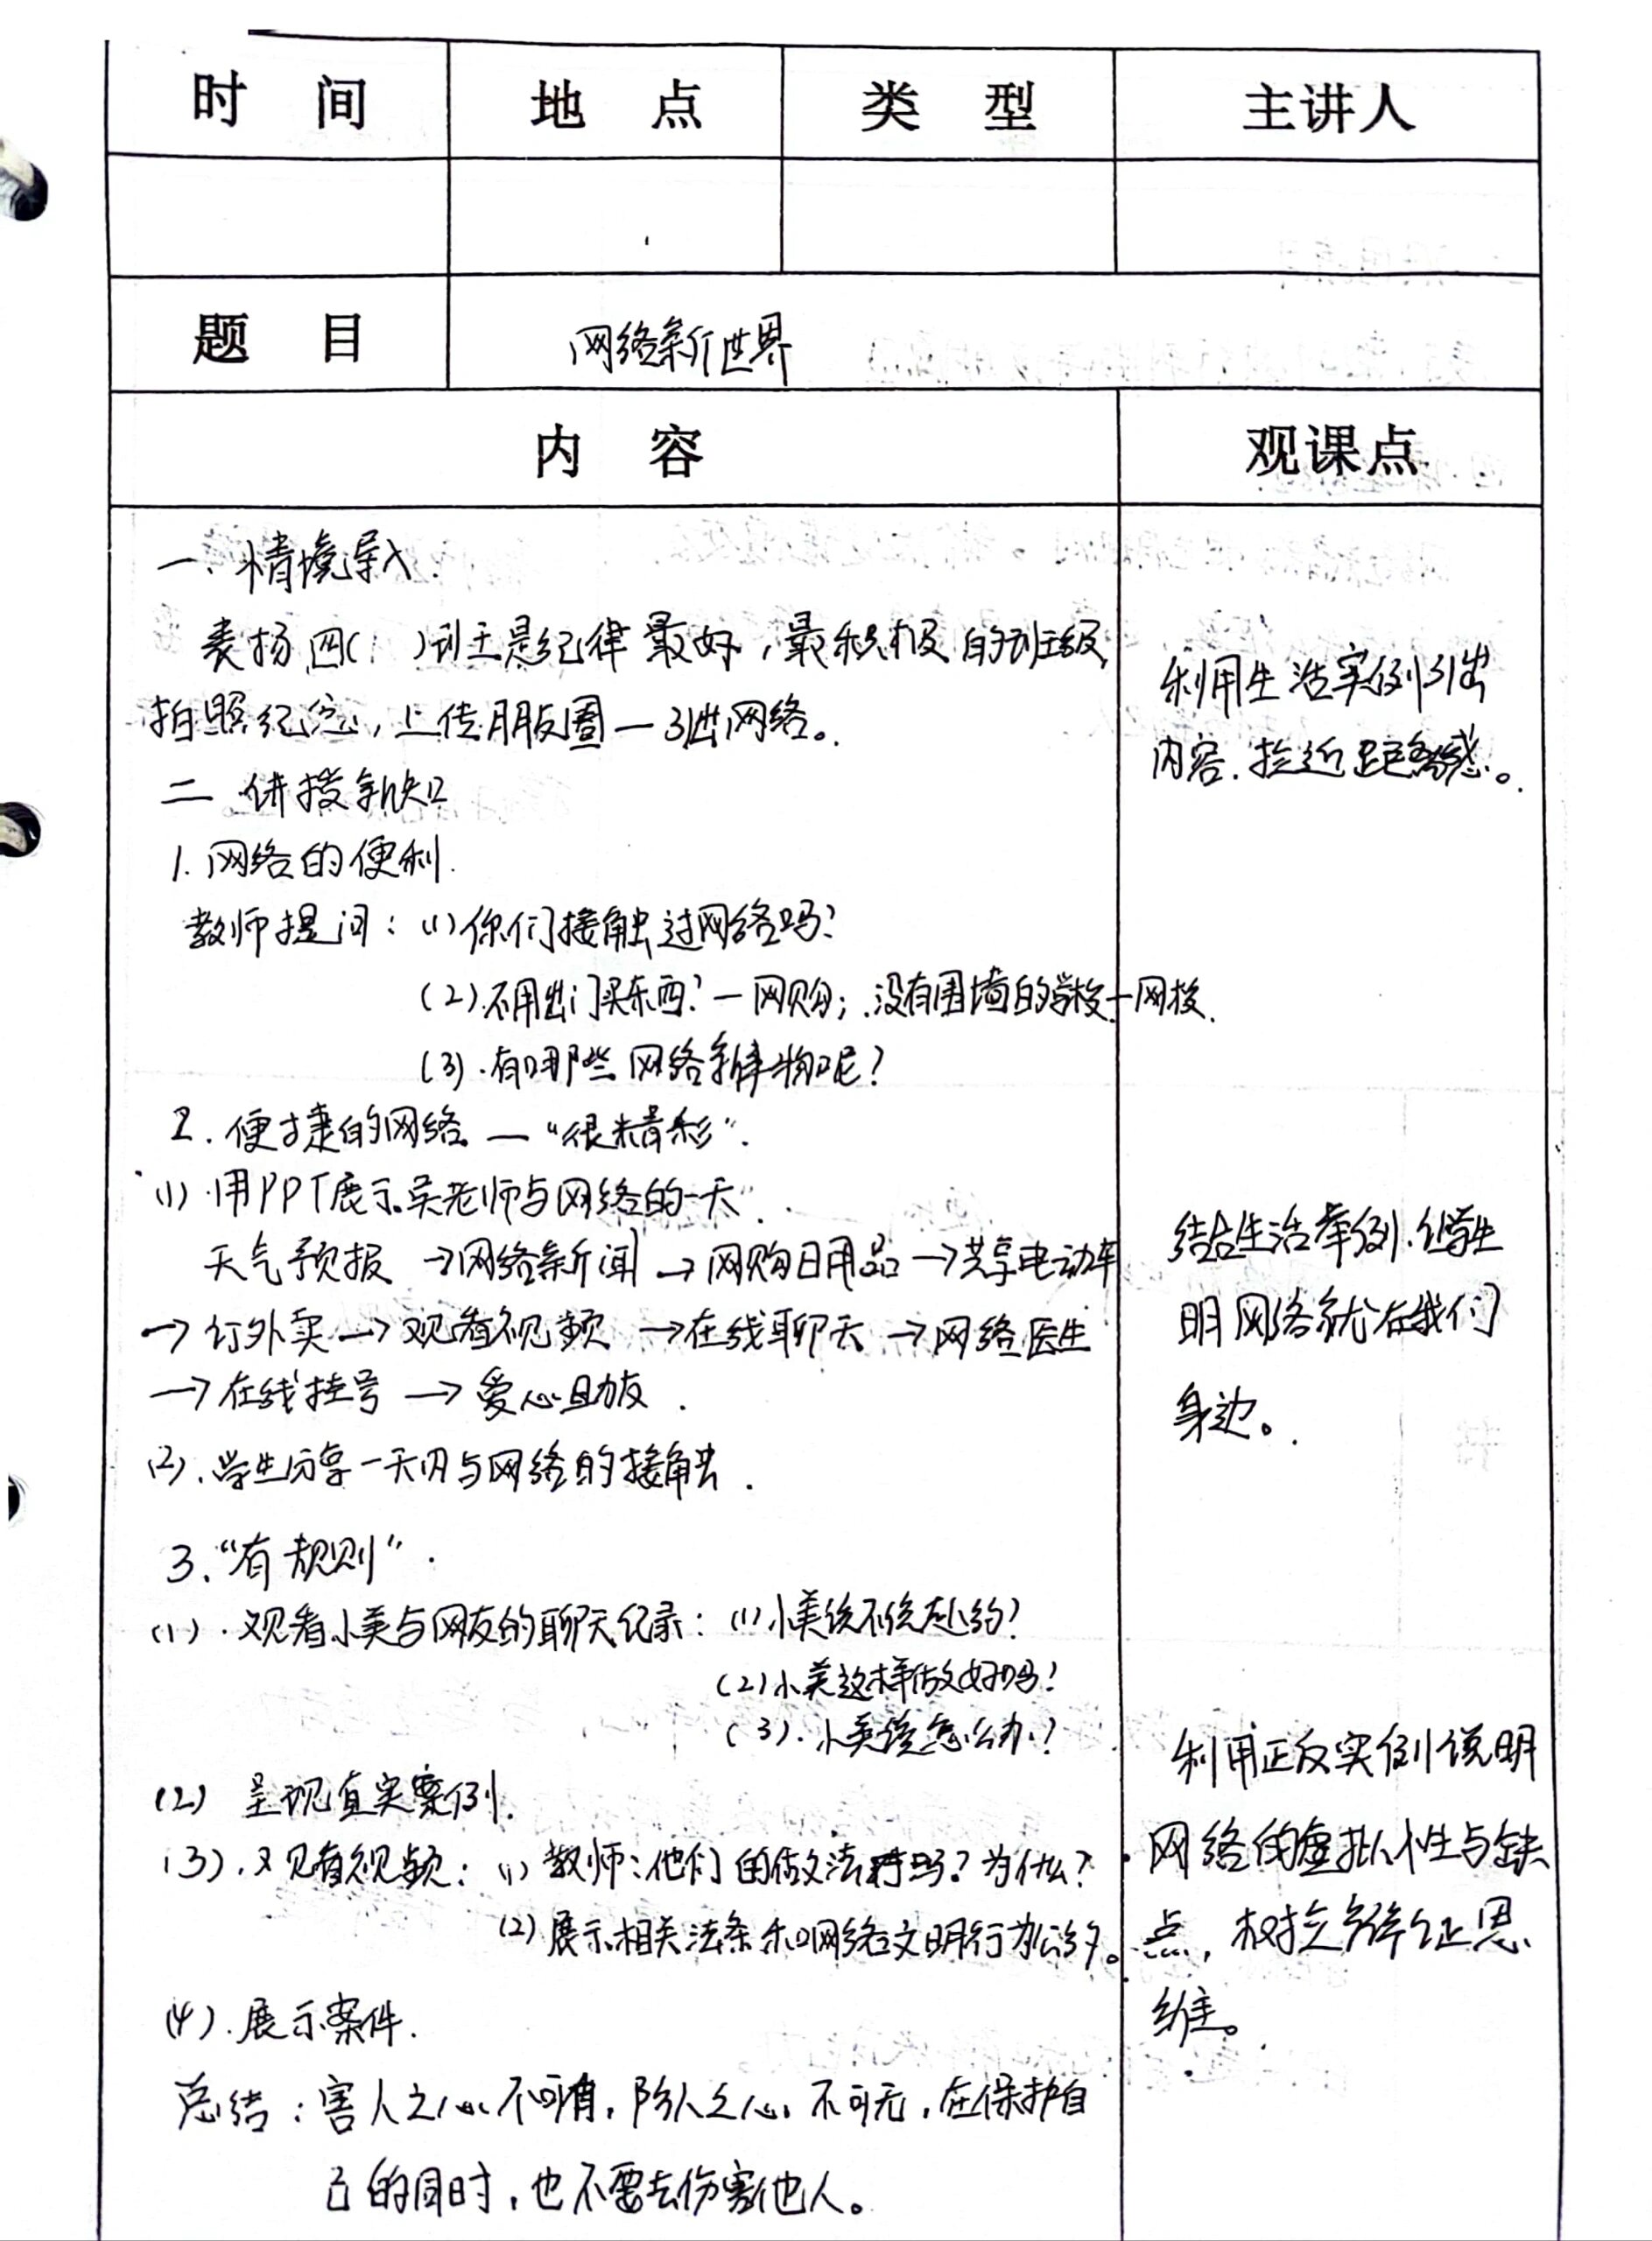 时 间 地 点 类 型 主讲人
题 目 网络新世界
内 容 观课点
一、情境导入.
表扬四( )班是纪律最好,最积极的班级,
拍照纪念,上传朋友圈—引出网络。
利用生活实例引出
内容.拉近距离感。
二 讲授新知
1. 网络的便利.
教师提问:(1)你们接触过网络吗?
(2).不用出门买东西?—网购;没有围墙的学校—网校.
(3).有哪些网络新事物呢?
2. 便捷的网络 —“很精彩”.
(1) 用PPT展示吴老师与网络的一天
天气预报 →网络新闻→网购日用品→共享电动车
→订外卖→观看视频→在线聊天→网络医生
→在线挂号→爱心助友.
(2).学生分享一天内与网络的接触.
结合生活举例.让学生
明网络就在我们
身边。
3.“有规则”.
(1).观看小美与网友的聊天纪录:(1)小美该不该赴约?
(2)小美这样做好吗?
(3).小美该怎么办?
(2) 呈现真实案例.
(3).观看视频:(1)教师:他们的做法对吗?为什么?
(2)展示相关法条和网络文明行为公约。
(4).展示案件.
利用正反实例说明
网络的虚拟性与缺
点,树立辩证思
维。
总结:害人之心不可有,防人之心不可无,在保护自
己的同时,也不要去伤害他人。